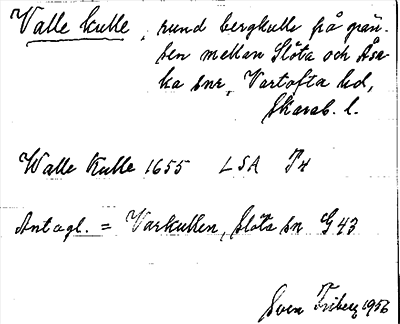 Valle kulle, rund bergkulle på grän-
sen mellan Slöta och Åsa-
ka snr, Vartofta hd,
Skarab. l.
Walle Kulle 1655 LSA P4
Antagl. = Varkullen, Slöta sn G43
Sven Friberg 1956